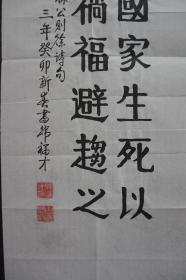 國家生死以
禍福避趨之
林公則徐詩句
三年癸卯新春書 福才